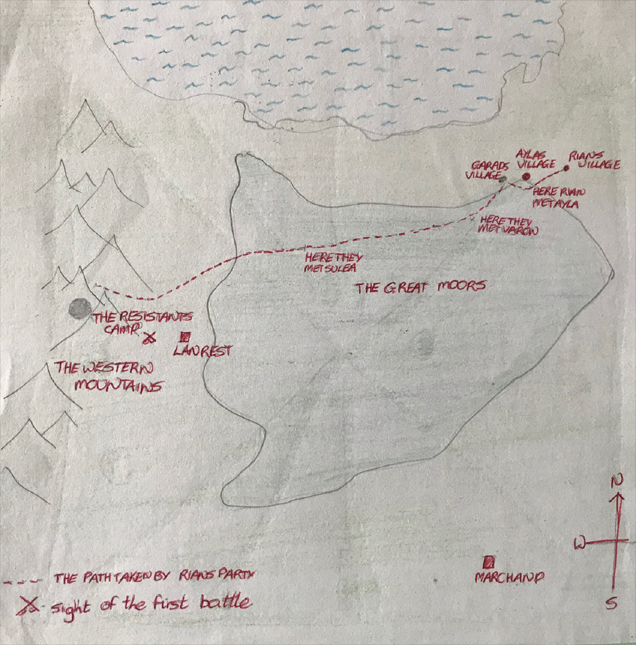 AYLAS
VILLAGE
RIANS
VILLAGE
GARADS
VILLAGE
HERE RIAN
MET AYLA
HERE THEY
MET VARON
HERE THEY
MET SULEA
THE GREAT MOORS
THE RESISTANTS
CAMP
LANREST
THE WESTERN
MOUNTAINS
N
W
S
MARCHAND
THE PATH TAKEN BY RIANS PARTY
sight of the first battle